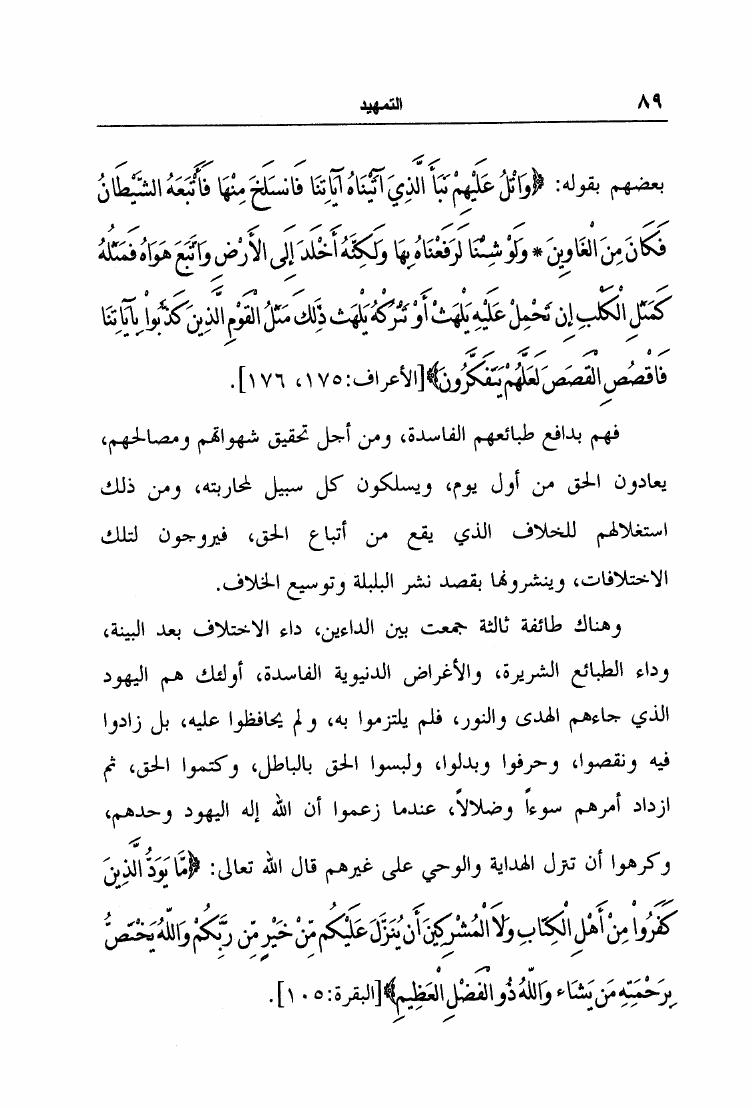 ٨٩ التمهيد
بعضهم بقوله: ﴿وَاتْلُ عَلَيْهِمْ نَبَأَ الَّذِيَ آتَيْنَاهُ آيَاتِنَا فَانسَلَخَ مِنْهَا فَأَتْبَعَهُ الشَّيْطَانُ
فَكَانَ مِنَ الْغَاوِينَ * وَلَوْ شِئْنَا لَرَفَعْنَاهُ بِهَا وَلَكِنَّهُ أَخْلَدَ إِلَى الأَرْضِ وَاتَّبَعَ هَوَاهُ فَمَثَلُهُ
كَمَثَلِ الْكَلْبِ إِن تَحْمِلْ عَلَيْهِ يَلْهَثْ أَوْ تَتْرُكْهُ يَلْهَث ذَّلِكَ مَثَلُ الْقَوْمِ الَّذِينَ كَذَّبُواْ بِآيَاتِنَا
فَاقْصُصِ الْقَصَصَ لَعَلَّهُمْ يَتَفَكَّرُونَ﴾[الأعراف:١٧٥، ١٧٦].
فهم بدافع طبائعهم الفاسدة، ومن أجل تحقيق شهواتهم ومصالحهم،
يعادون الحق من أول يوم، ويسلكون كل سبيل لمحاربته، ومن ذلك
استغلالهم للخلاف الذي يقع من أتباع الحق، فيروجون لتلك
الاختلافات، وينشرونها بقصد نشر البلبلة وتوسيع الخلاف.
وهناك طائفة ثالثة جمعت بين الداءين، داء الاختلاف بعد البينة،
وداء الطبائع الشريرة، والأغراض الدنيوية الفاسدة، أولئك هم اليهود
الذي جاءهم الهدى والنور، فلم يلتزموا به، ولم يحافظوا عليه، بل زادوا
فيه ونقصوا، وحرفوا وبدلوا، ولبسوا الحق بالباطل، وكتموا الحق، ثم
ازداد أمرهم سوءاً وضلالاً، عندما زعموا أن الله إله اليهود وحدهم،
وكرهوا أن تتزل الهداية والوحي على غيرهم قال الله تعالى: ﴿مَّا يَوَدُّ الَّذِينَ
كَفَرُواْ مِنْ أَهْلِ الْكِتَابِ وَلاَ الْمُشْرِكِينَ أَن يُنَزَّلَ عَلَيْكُم مِّنْ خَيْرٍ مِّن رَّبِّكُمْ وَاللّهُ يَخْتَصُّ
بِرَحْمَتِهِ مَن يَشَاء وَاللّهُ ذُو الْفَضْلِ الْعَظِيمِ﴾[البقرة:١٠٥].